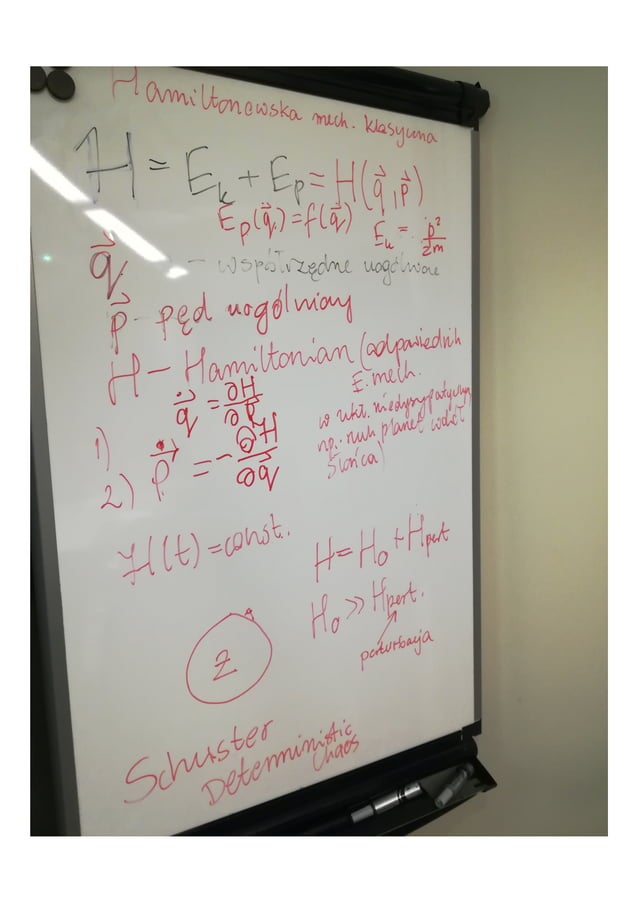 Hamiltonowska mech. klasyczna
H = E_k + E_p = H(q⃗, p⃗)
E_p(q⃗) = f(q⃗)
E_k = p²/2m
q⃗ - współrzędne uogólnione
p⃗ - pęd uogólniony
H - Hamiltonian (odpowiednik
E. mech.
w ukł. niedyssypatywnym
np. ruch planet wokół
Słońca)
1) q⃗̇ = ∂H/∂p⃗
2) p⃗̇ = -∂H/∂q⃗
H(t) = const.
H = H₀ + Hpert
H₀ >> Hpert.
perturbacja
Z
Schuster
Deterministic
Chaos